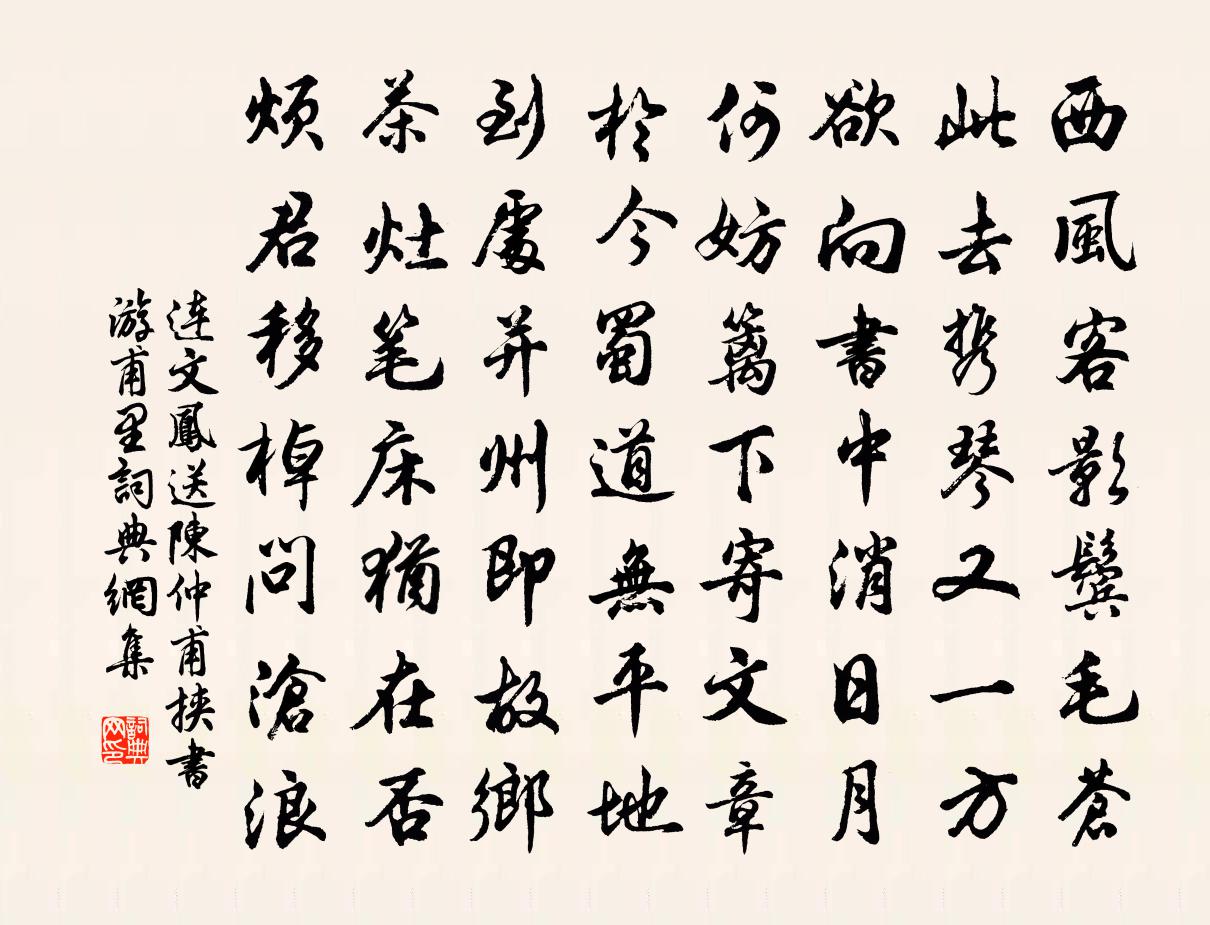 西風客影鬢毛蒼
此去携琴又一方
欲向書中消日月
何妨籬下寄文章
於今蜀道無平地
到處并州即故鄉
茶灶笔床猶在否
煩君移棹問滄浪
连文鳳送陳仲甫挾書
游甫里詞典網集
詞典网印